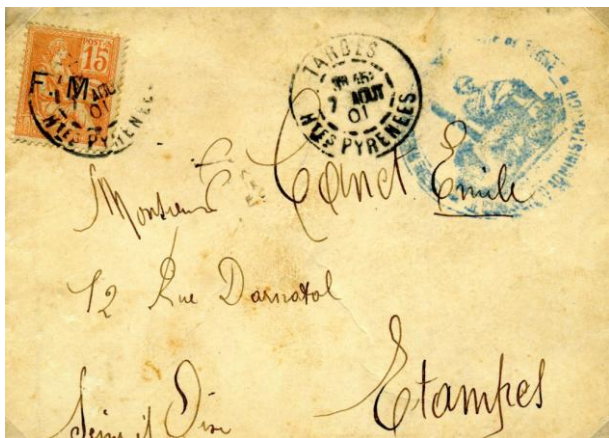 POSTES
15
F.M
AOUT
01
Htes PYRENEES
TARBES
7 AOUT
01
Htes PYRENEES
Monsieur Canet Emile
12 Rue Darnatal
Etampes
Seine et Oise